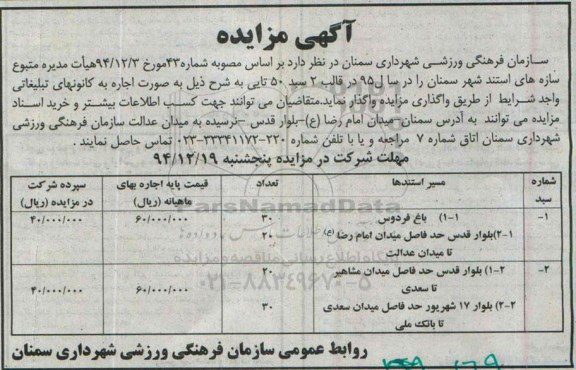 آگهی مزایده
سازمان فرهنگی ورزشی شهرداری سمنان در نظر دارد بر اساس مصوبه شماره۴۳مورخ ۹۴/۱۲/۳هیأت مدیره متبوع
سازه های استند شهر سمنان را در سال ۹۵ در قالب ۲ سبد ۵۰ تایی به شرح ذیل به صورت اجاره به کانونهای تبلیغاتی
واجد شرایط از طریق واگذاری مزایده واگذار نماید.متقاضیان می توانند جهت کسب اطلاعات بیشتر و خرید اسناد
مزایده می توانند به آدرس سمنان-میدان امام رضا (ع)-بلوار قدس -نرسیده به میدان عدالت سازمان فرهنگی ورزشی
شهرداری سمنان اتاق شماره ۷ مراجعه و یا با تلفن شماره ۲۲۰-۳۳۳۴۱۱۷۲-۰۲۳ تماس حاصل نمایند .
مهلت شرکت در مزایده پنجشنبه ۹۴/۱۲/۱۹
شماره سبد مسیر استندها تعداد قیمت پایه اجاره بهای ماهیانه (ریال) سپرده شرکت در مزایده (ریال)
۱- ۱-۱) باغ فردوس ۳۰ ۶۰/۰۰۰/۰۰۰ ۴۰/۰۰۰/۰۰۰
۲-۱)بلوار قدس حد فاصل میدان امام رضا (ع) ۲۰
تا میدان عدالت
۲- ۱-۲) بلوار قدس حد فاصل میدان مشاهیر ۲۰ ۶۰/۰۰۰/۰۰۰ ۴۰/۰۰۰/۰۰۰
تا سعدی
۲-۲) بلوار ۱۷ شهریور حد فاصل میدان سعدی ۳۰
تا بانک ملی
روابط عمومی سازمان فرهنگی ورزشی شهرداری سمنان
ParsNamadData
پایگاه اطلاع رسانی مناقصه و مزایده
۰۲۱-۸۸۳۴۹۶۷۰-۵